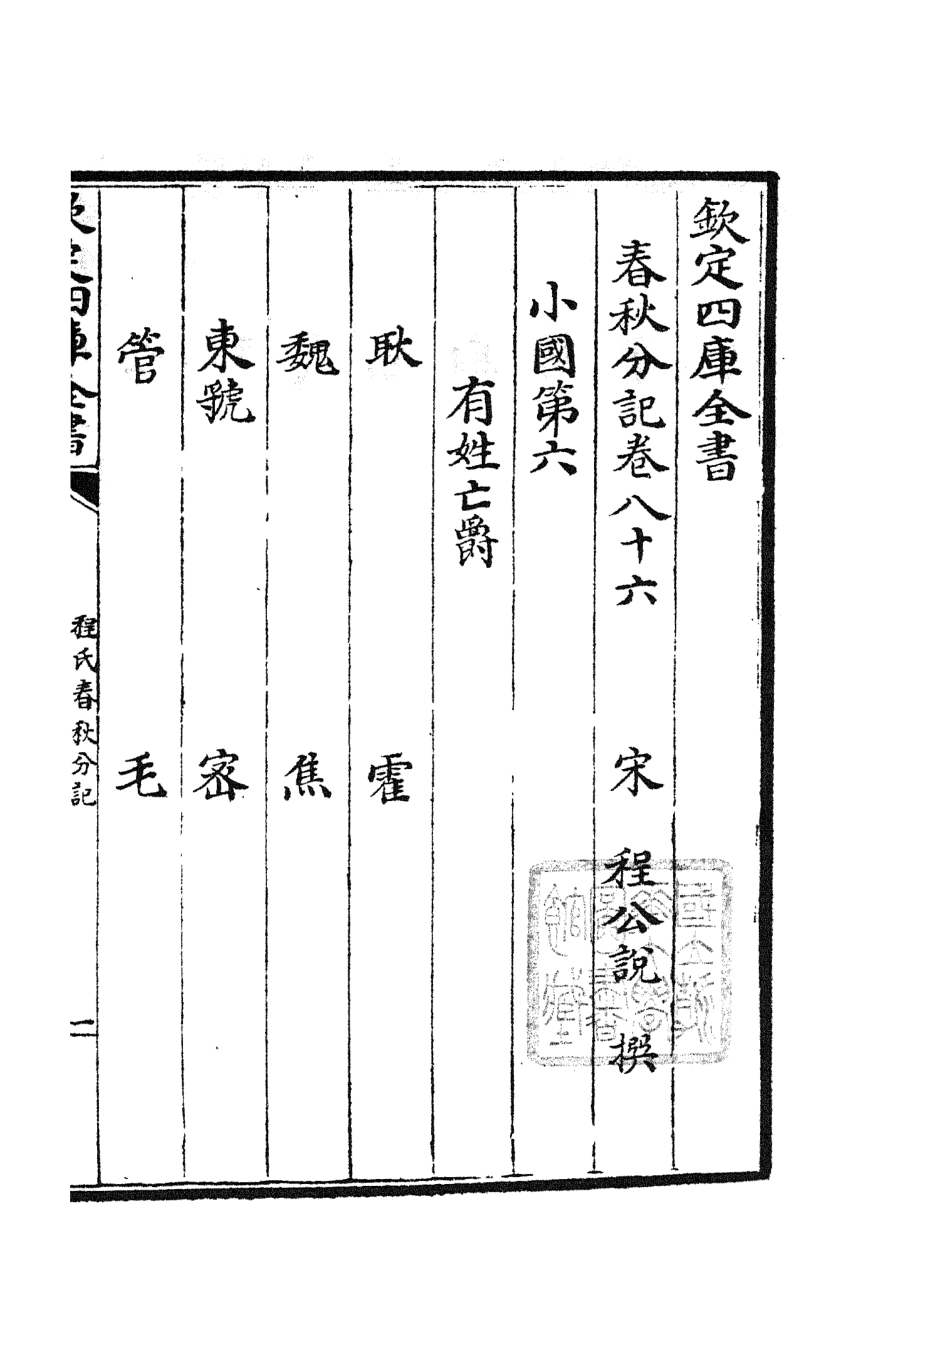 欽定四庫全書
春秋分記卷八十六 宋 程公說 撰
小國第六
有姓亡爵
耿 霍
魏 焦
東虢 密
管 毛
欽定四庫全書 程氏春秋分記 二